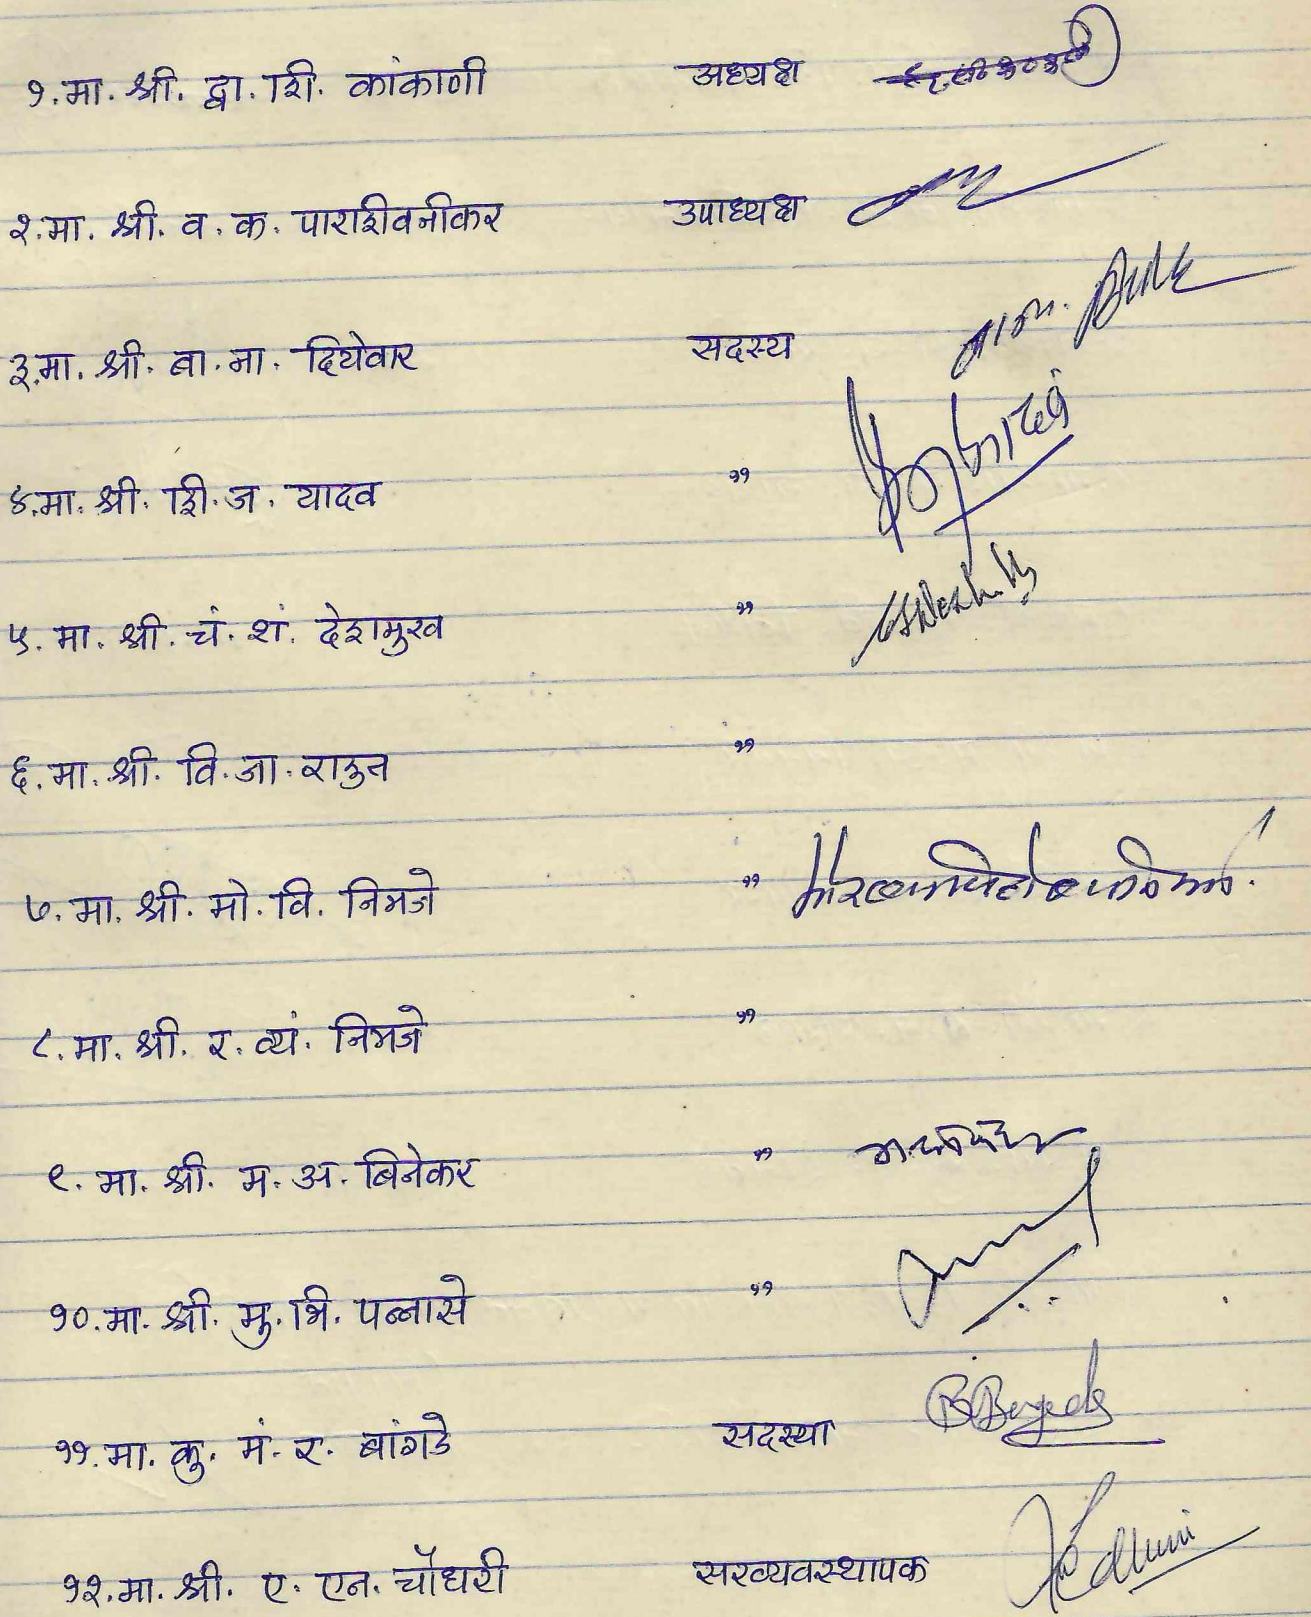 १. मा. श्री. द्वा. शि. कांकाणी अध्यक्ष
२. मा. श्री. व. क. पाराशीवनीकर उपाध्यक्ष
३. मा. श्री. बा. ना. दियेवार सदस्य
४. मा. श्री. शि. ज. यादव "
५. मा. श्री. चं. शं. देशमुख "
६. मा. श्री. वि. जा. राऊत "
७. मा. श्री. मो. वि. निमजे "
८. मा. श्री. र. व्यं. निमजे "
९. मा. श्री. म. अ. बिनेकर "
१०. मा. श्री. मु. भि. पन्नासे "
११. मा. कु. मं. र. बांगडे सदस्या
१२. मा. श्री. ए. एन. चौधरी सरव्यवस्थापक